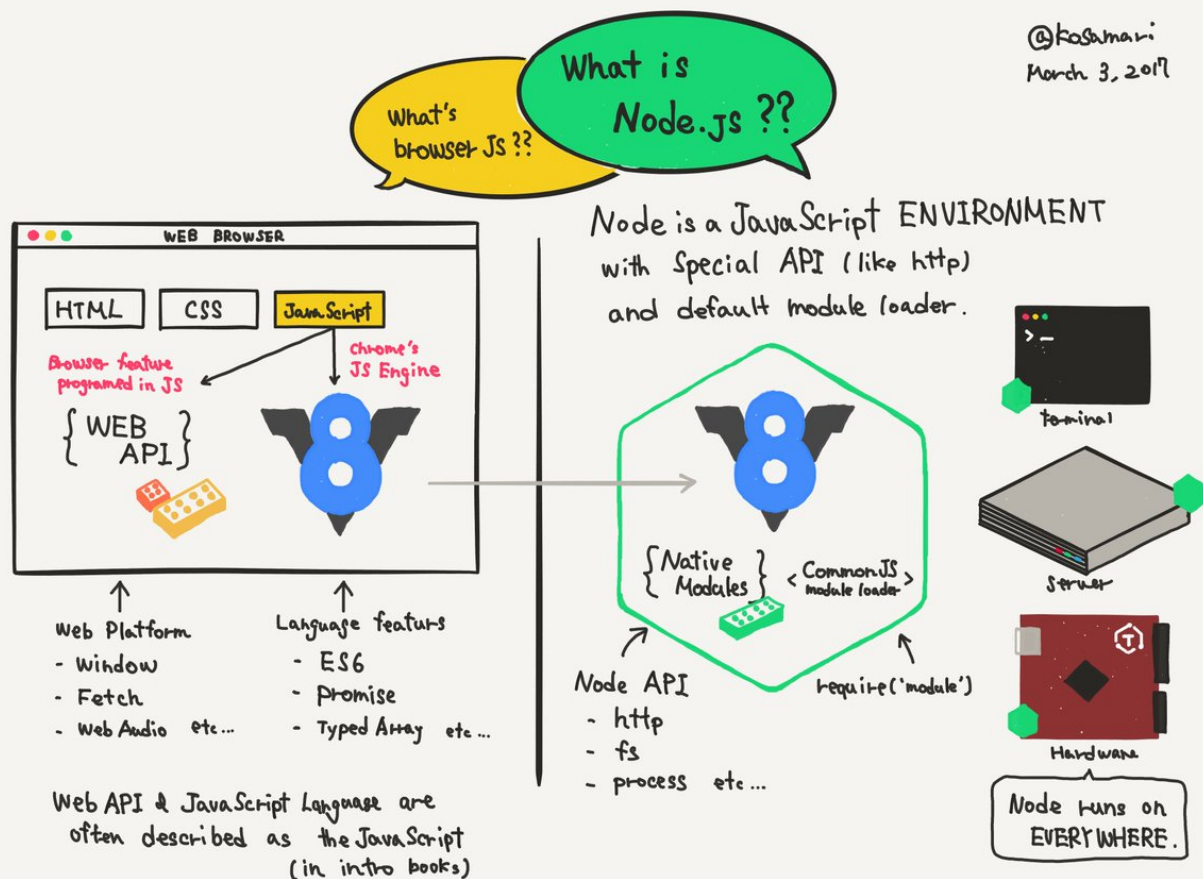 @kosamari
March 3, 2017
What is
Node.js ??
What's
browser Js ??
WEB BROWSER
HTML
CSS
JavaScript
Browser feature
programed in JS
Chrome's
JS Engine
{WEB
API}
8
Web Platform
- Window
- Fetch
- Web Audio etc...
Language featurs
- ES6
- Promise
- Typed Array etc...
Web API & JavaScript Language are
often described as the JavaScript
(in intro books)
Node is a JavaScript ENVIRONMENT
with Special API (like http)
and default module loader.
8
{Native
Modules}
<CommonJS
module loader>
Node API
- http
- fs
- process etc...
require('module')
>_
terminal
server
T
Hardware
Node runs on
EVERYWHERE.